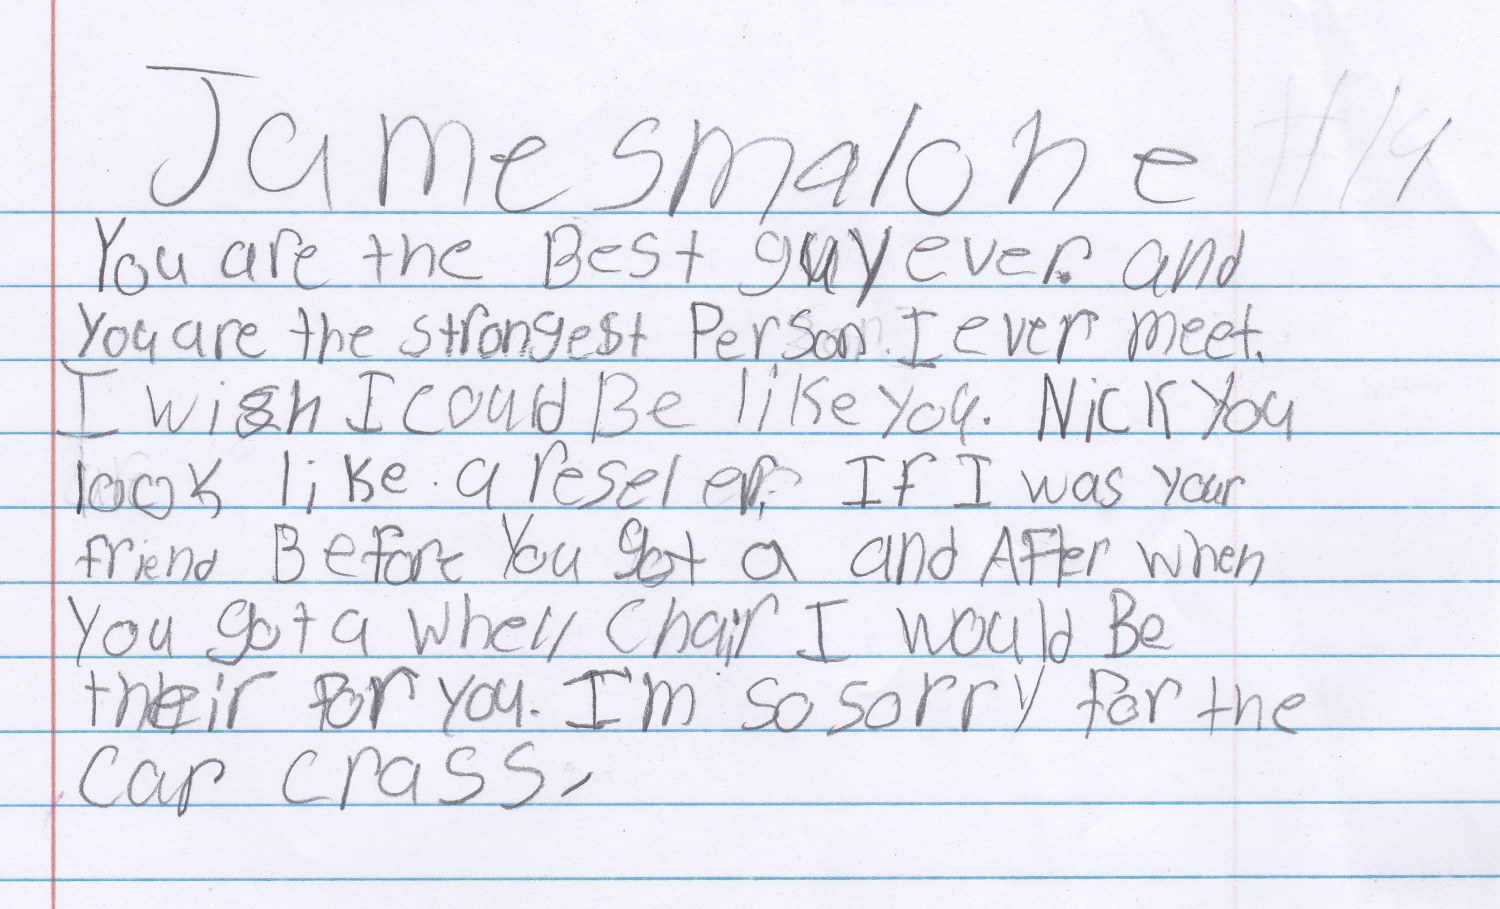 Jamesmalone #19
You are the Best guy ever. and
You are the strongest Person. I ever meet.
I wish I could Be like you. Nick You
look like a reseler. If I was your
friend Before You got a and After when
You got a whell Chair I would Be
their for you. I'm so sorry for the
Car crass.